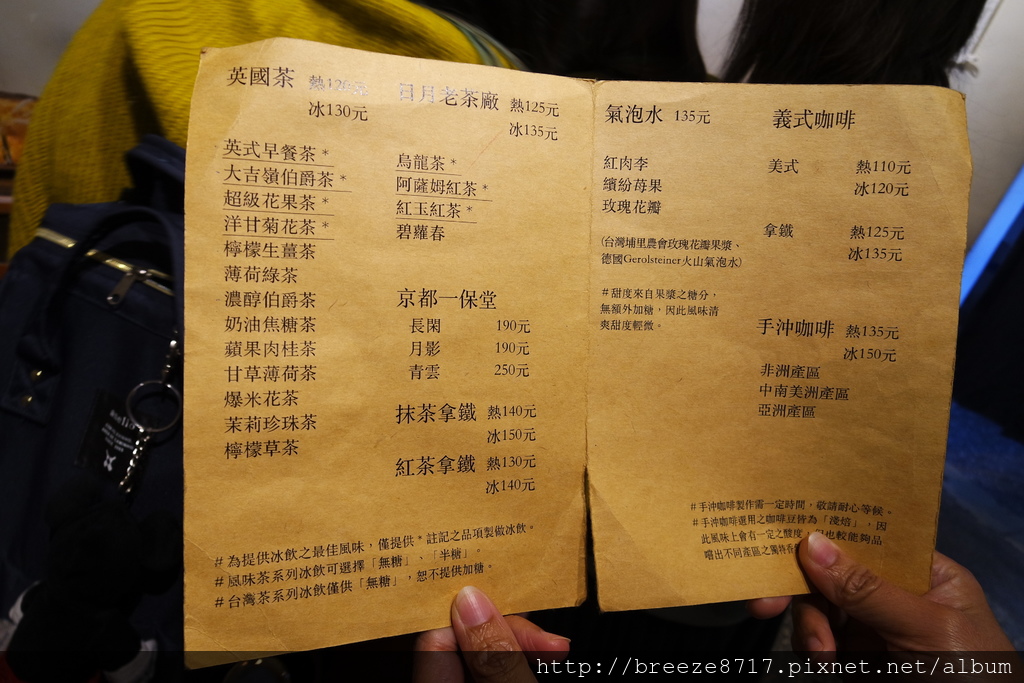 英國茶 熱120元
冰130元
英式早餐茶*
大吉嶺伯爵茶*
超級花果茶*
洋甘菊花茶*
檸檬生薑茶
薄荷綠茶
濃醇伯爵茶
奶油焦糖茶
蘋果肉桂茶
甘草薄荷茶
爆米花茶
茉莉珍珠茶
檸檬草茶
日月老茶廠 熱125元
冰135元
烏龍茶*
阿薩姆紅茶*
紅玉紅茶*
碧蘿春
京都一保堂
長閑 190元
月影 190元
青雲 250元
抹茶拿鐵 熱140元
冰150元
紅茶拿鐵 熱130元
冰140元
#為提供冰飲之最佳風味,僅提供*註記之品項製做冰飲。
#風味茶系列冰飲可選擇「無糖」、「半糖」。
#台灣茶系列冰飲僅供「無糖」,恕不提供加糖。
氣泡水 135元
紅肉李
繽紛苺果
玫瑰花瓣
(台灣埔里農會玫瑰花瓣果漿、
德國Gerolsteiner火山氣泡水)
#甜度來自果漿之糖分,
無額外加糖,因此風味清
爽甜度輕微。
義式咖啡
美式 熱110元
冰120元
拿鐵 熱125元
冰135元
手沖咖啡 熱135元
冰150元
非洲產區
中南美洲產區
亞洲產區
#手沖咖啡製作需一定時間,敬請耐心等候。
#手沖咖啡選用之咖啡豆皆為「淺焙」,因
此風味上會有一定之酸度,但也較能夠品
嚐出不同產區之獨特香
http://breeze8717.pixnet.net/album